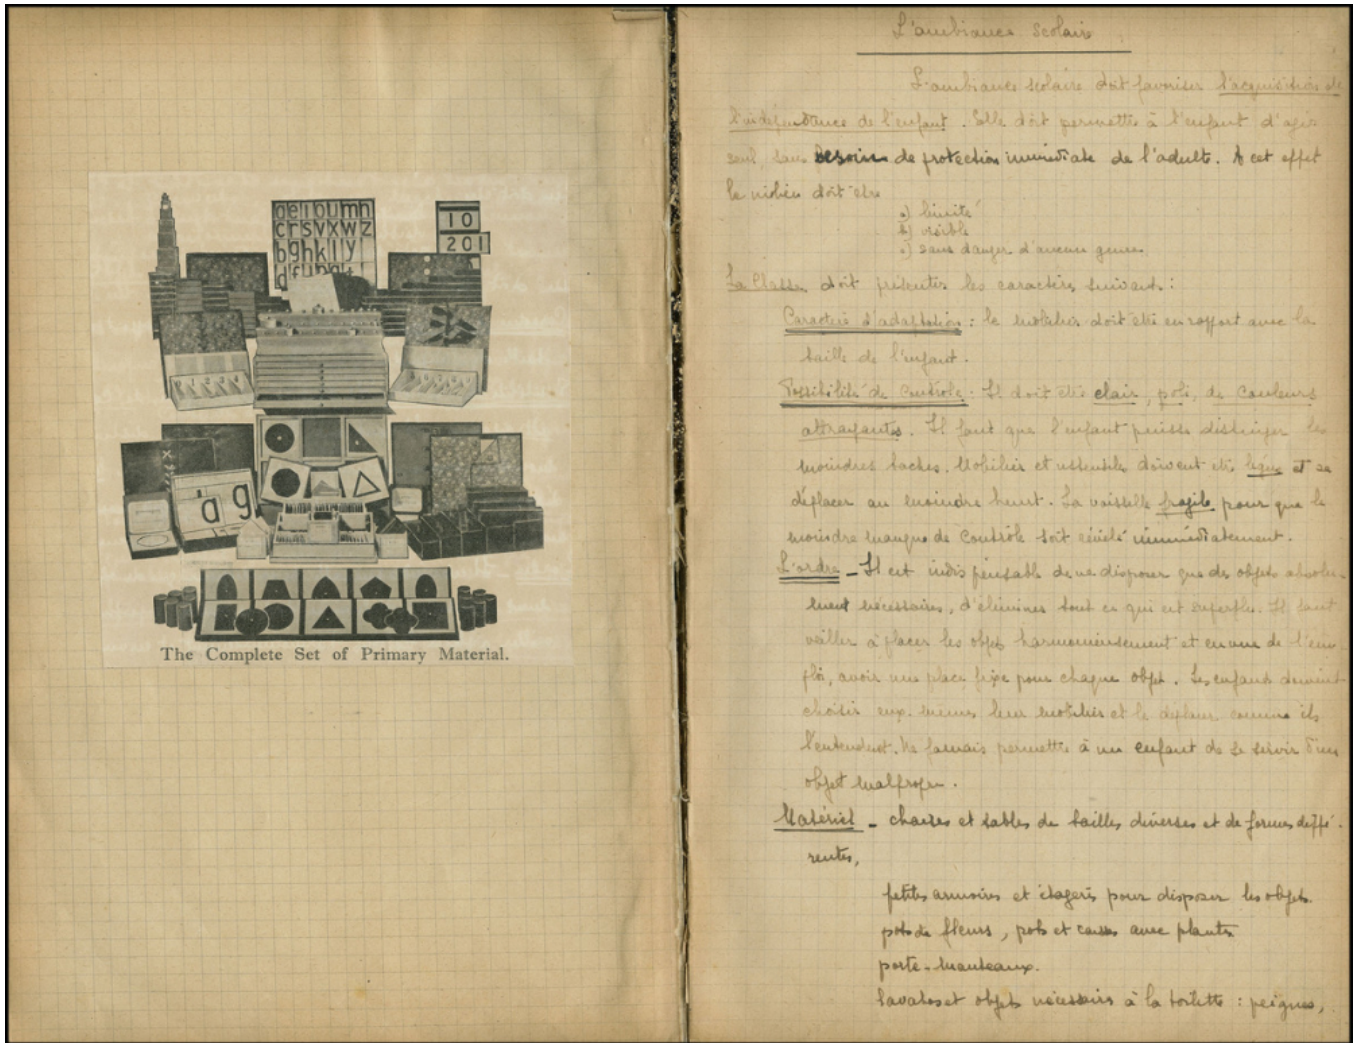 aeioumn
crsvxwz
bghkly
10
201
a g
The Complete Set of Primary Material.
L'ambiance scolaire
L'ambiance scolaire doit favoriser l'acquisition de
l'indépendance de l'enfant. Elle doit permettre à l'enfant d'agir
seul, sans besoin de protection immédiate de l'adulte. A cet effet
le milieu doit être
a) limité
b) visible
c) sans danger d'aucun genre
La Classe doit présenter les caractères suivants :
Caractère d'adaptation : le mobilier doit être en rapport avec la
taille de l'enfant.
Possibilité de Contrôle : Il doit être clair, poli, de couleurs
attrayantes. Il faut que l'enfant puisse distinguer les
moindres taches. Mobilier et ustensiles doivent être légers et se
déplacer au moindre heurt. La vaisselle fragile pour que le
moindre manque de Contrôle soit révélé immédiatement.
L'ordre - Il est indispensable de ne disposer que des objets absolu-
ment nécessaires, d'éliminer tout ce qui est superflu. Il faut
veiller à placer les objets harmonieusement et en vue de l'em-
ploi, avoir une place fixe pour chaque objet. Les enfants doivent
choisir eux-mêmes leur mobilier et le déplacer comme ils
l'entendent. Ne jamais permettre à un enfant de se servir d'un
objet malpropre.
Matériel - chaises et tables de tailles diverses et de formes diffé-
rentes,
petites armoires et étagères pour disposer les objets.
pots de fleurs, pots et caisses avec plantes
porte-manteaux.
lavabos et objets nécessaires à la toilette : peignes,